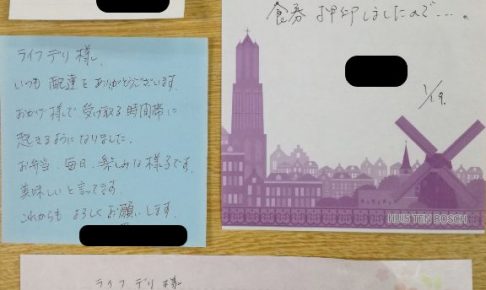 ライフデリ様。
いつも配達をありがとうございます。
おかげ様で受け取る時間帯に
起きるようになりました。
お弁当、毎日、楽しみな様子です。
美味しいと言ってます。
これからもよろしくお願いします。
食券押印しましたので…。
1/19.
HUIS TEN BOSCH
ライフデリ様